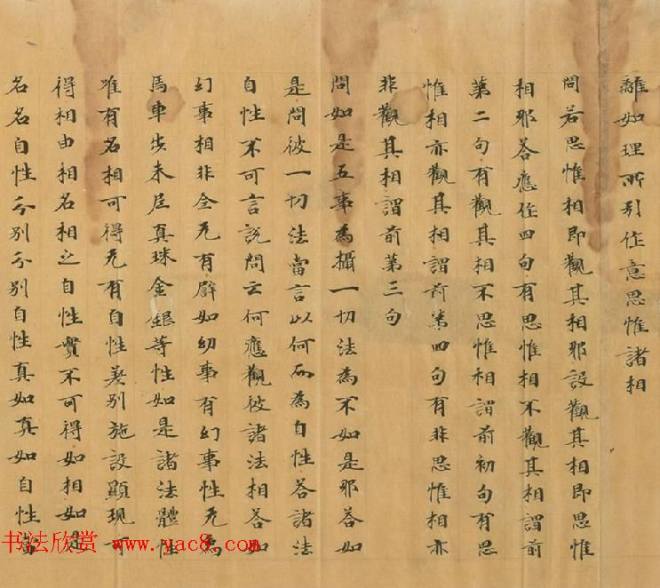 離如理所引作意思惟諸相
問若思惟相即觀其相邪設觀其相即思惟
相邪荅應作四句有思惟相不觀其相謂前
第二句有觀其相不思惟相謂前初句有思
惟相亦觀其相謂前第四句有非思惟相亦
非觀其相謂前第三句
問如是五事為攝一切法為不如是邪荅如
是問彼一切法當言以何而為自性荅諸法
自性不可言說問云何應觀彼諸法相荅如
幻事相非全无有譬如幻事有幻事性无為
馬車步末尼真珠金銀等性如是諸法體性
唯有名相可得无有自性差別施設顯現可
得相由相名相之自性實不可得如相如是
名名自性分別分別自性真如真如自性當
书法欣赏 www.yac8.com